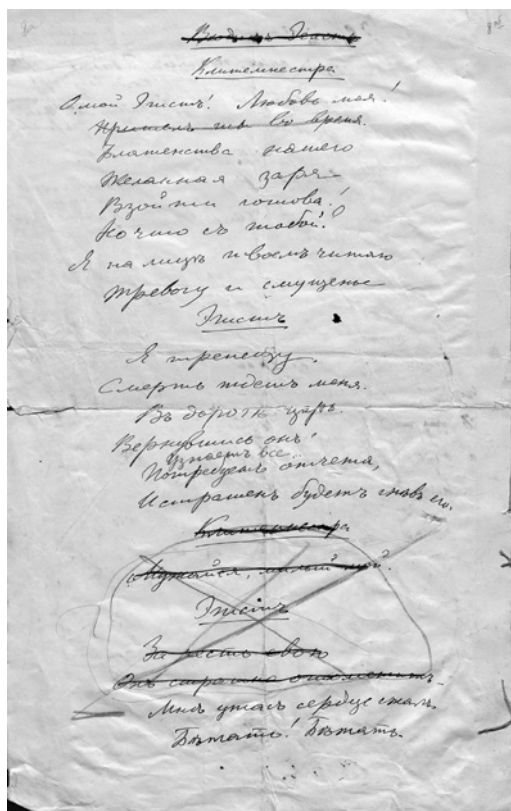 Входитъ Эгистъ
Клитемнестра
О мой Эгистъ! Любовь моя!
Пришелъ ты во время.
Блаженства нашего
Желанная заря
Взойти готова!
Но что съ тобой?
Я на лицѣ твоемъ читаю
Тревогу и смущенье
Эгистъ
Я трепещу.
Смерть ждетъ меня.
Въ дорогѣ царь.
Вернувшись онъ!
Узнаетъ все.
Потребуетъ отчета,
И страшенъ будетъ гнѣвъ его.
Клитемнестра
Мужайся, милый мой.
Эгистъ
За честь свою
Онъ страшно отомститъ.
Мнѣ ужасъ сердце сжалъ.
Бѣжать! Бѣжать.